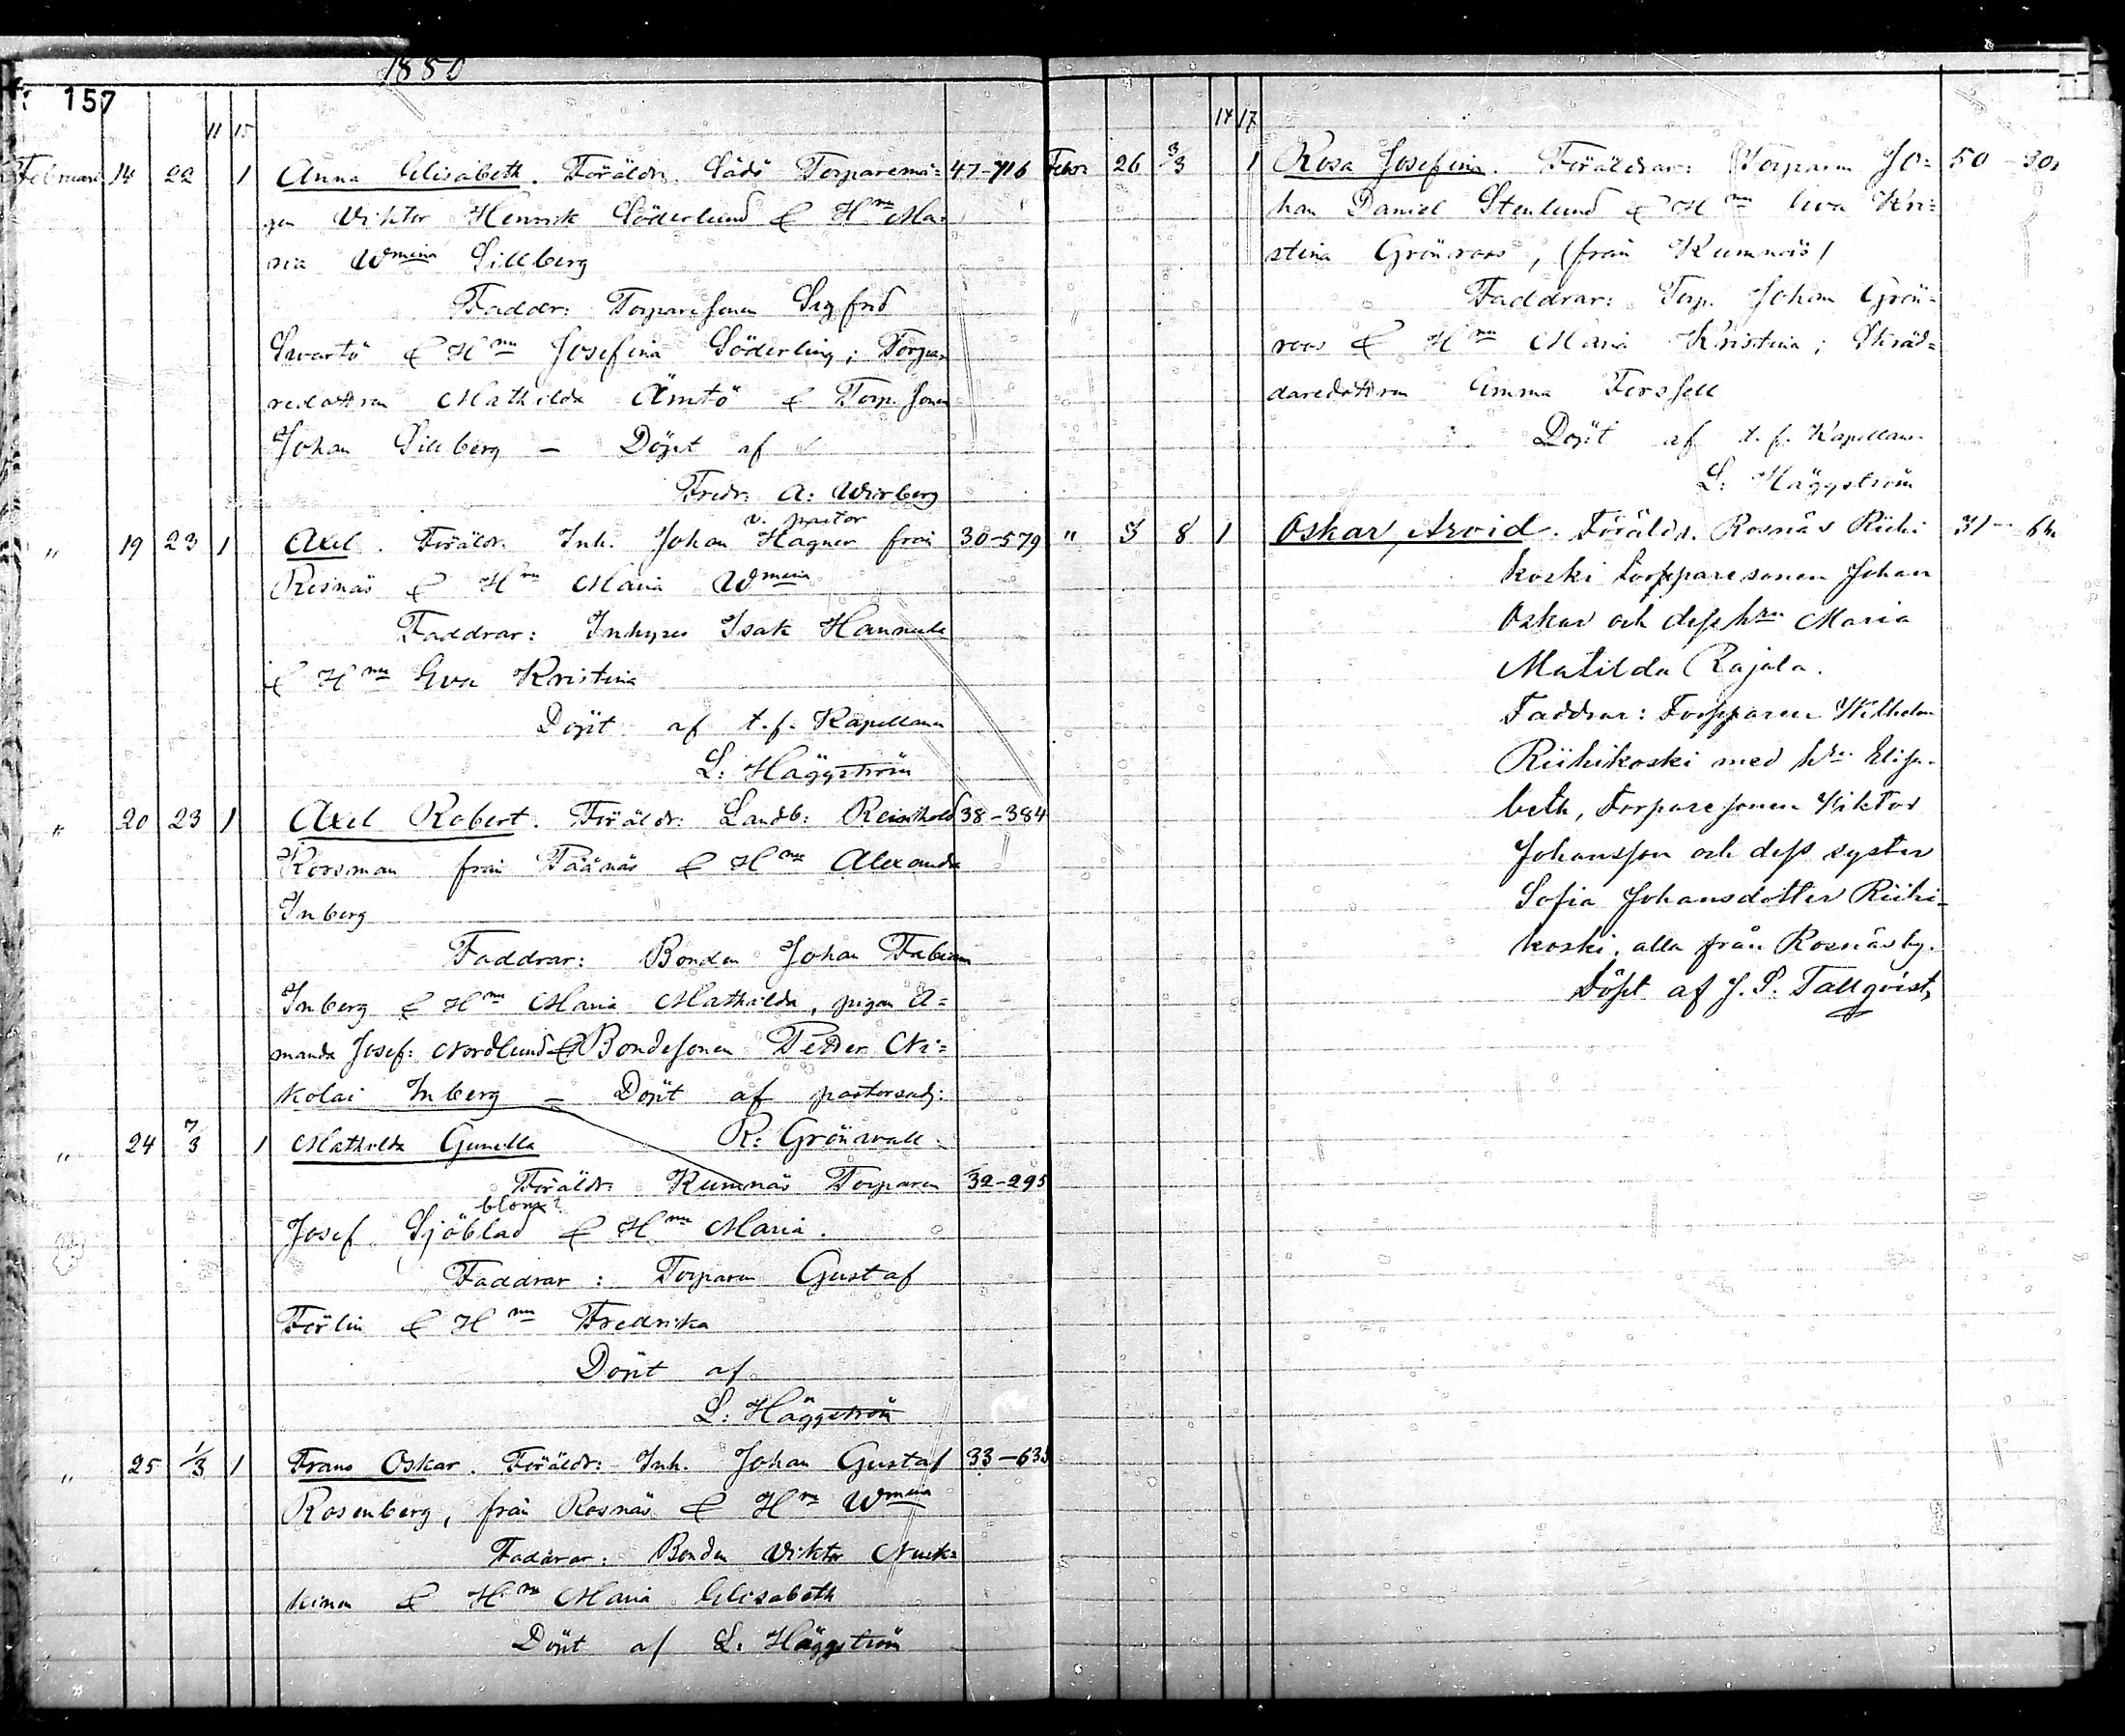 1880
157
11 15
Februari 14 22 1 Anna Elisabeth. Föräldr. Sådö Torparemå= 47-716
gen Viktor Henrik Söderlund & Hnu Ma=
ria Wmina Sillberg
Faddr: Torparesonen Sigfrid
Svartö & Hnu Josefina Söderling; Torpa
redottren Mathilda Ämtö & Torp. sonen
Johan Sillberg — Döpt af
Fredr: A: Wirberg
v. pastor
" 19 23 1 Axel. Föräldr. Inh. Johan Hagner från 30-579
Rosnäs & Hnu Maria Wmina
Faddrar: Inhyses Isak Hannula
& Hnu Eva Kristina
Döpt af t.f. Kapellanen
L: Häggström
" 20 23 1 Axel Robert. Föräldr: Landb: Reinhold 38-384
Korsman från Päänäs & Hnu Alexandra
Inberg
Faddrar: Bonden Johan Fabian
Inberg & Hnu Maria Mathilda, pigan A=
manda Josef: Nordlund & Bondesonen Petter Ni=
kolai Inberg — Döpt af pastorsadj:
R: Grönvall
" 24 7/3 1 Mathilda Gunilla
Föräldr: Kumnäs Torparen 32-295
blom?
Josef Sjöblad & Hnu Maria.
Faddrar: Torparen Gustaf
Ferlin & Hnu Fredrika
Döpt af
L: Häggström
" 25 1/3 1 Frans Oskar. Föräldr: Inh. Johan Gustaf 33-635
Rosenberg, från Rosnäs & Hnu Wmina
Faddrar: Bonden Viktor Nuek=
kinen & Hnu Maria Elisabeth
Döpt af L: Häggström
14 17
Febr: 26 3/3 1 Rosa Josefina. Föräldrar: Torparen Jo= 50-301
han Daniel Stenlund & Hnu Eva Kri=
stina Grönroos, (från Kumnäs)
Faddrar: Torp. Johan Grön=
roos & Hnu Maria Kristina; Skräd=
daredottren Emma Forssell
Döpt af t.f. Kapellan
L: Häggström
" 3 8 1 Oskar Arvid. Föräldr. Rosnäs Riihi= 31-
koski torpparesonen Johan
Oskar och dess hru Maria
Matilda Rajala.
Faddrar: Torpparen Wilhelm
Riihikoski med hru Elisa=
beth, Torparesonen Viktor
Johansson och dess syster
Sofia Johansdotter Riihi=
koski, alla från Rosnäs by.
Döpt af J. S. Tallqvist